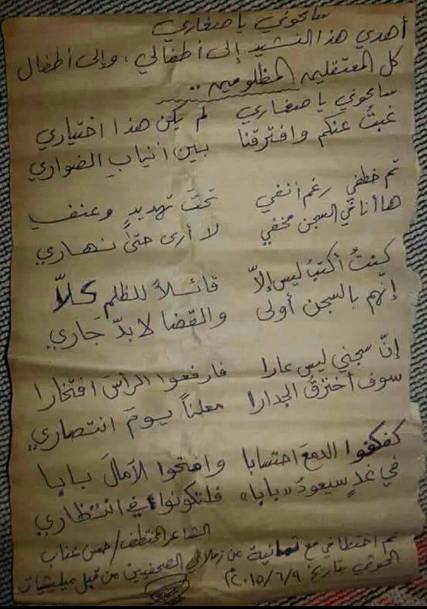 سامحوني يا صغاري
أهدي هذا النشيد إلى أطفالي، وإلى أطفال
كل المعتقلين المظلومين ..
سامحوني يا صغاري لم يكن هذا اختياري
غبتُ عنكم وافترقنا بين أنياب الضواري
تم خطفي رغم أنفي تحتَ تهديدٍ وعنفِ
ها أنا في السجن مخفي لا أرى حتىٰ نهاري
كنتُ أكتبُ ليس إلاّ قائلاً للظلم كلاّ
إنّهم بالسجن أولى والقضا لا بدّ جَاري
إنّ سجني ليس عارا فارفعوا الرأسَ افتخارا
سوف أخترقُ الجدارا معلناً يومَ انتصاري
كفكفوا الدمعَ احتسابا وافتحوا الآمالَ بابا
في غدٍ سيعودُ «بابا» فلتكونوا في انتظاري
الشاعر المختطف / حسن عناب
تم اختطافي مع ثمانية من زملائي الصحفيين من قبل ميليشيات
الحوثي بتاريخ: ٢٠١٥/٦/٩م